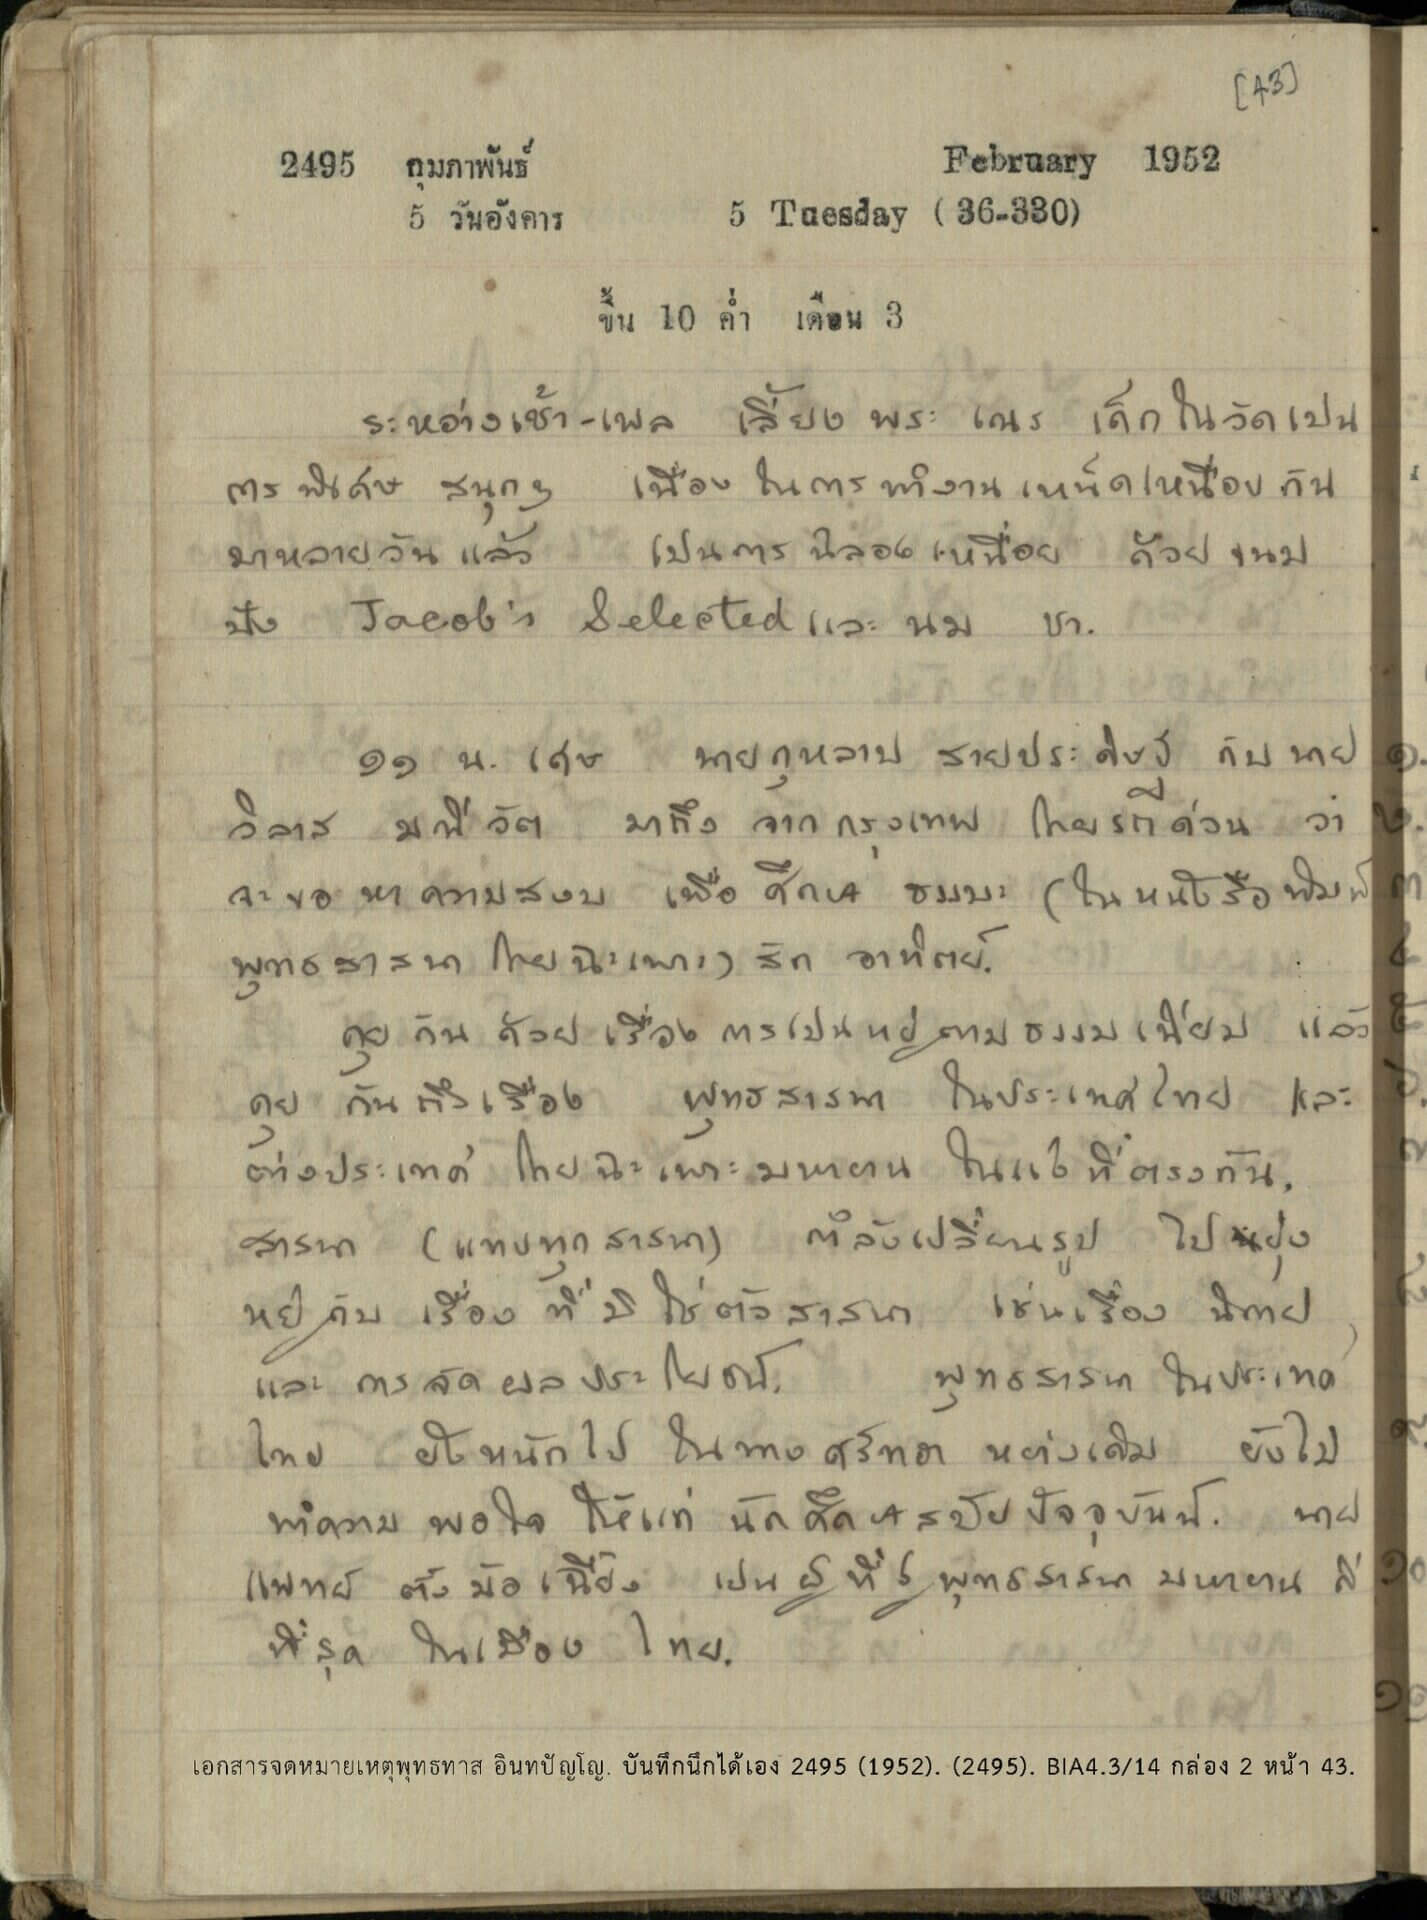 [43]
2495 กุมภาพันธ์ February 1952
5 วันอังคาร 5 Tuesday (36-330)
ขึ้น 10 ค่ำ เดือน 3
ระหว่างเช้า-เพล เลี้ยง พระ เณร เด็กในวัดเปน
การพิเศษ สนุกๆ เนื่องในการทำงานเหน็ดเหนื่อยกัน
มาหลายวันแล้ว เปนการฉลองเหนื่อย ด้วยขนม
ปัง Jacob's Selected และ นม ชา.
๑๑ น. เศษ นายกุหลาบ สายประดิษฐ์ กับนาย
วิลาส มณีวัต มาถึง จากกรุงเทพ โดยรถด่วน ว่า
จะขอหาความสงบ เพื่อศึกษา ธรรมะ (ในหนังสือพิมพ์
พุทธสาสนา โดยฉะเพาะ) สัก อาทิตย์.
คุยกันด้วยเรื่องการเปนหยู่ตามธรรมเนียม แล้ว
คุยกันถึงเรื่อง พุทธสาสนา ในประเทศไทย และ
ต่างประเทศ โดยฉะเพาะมหายาน ในแง่ที่ตรงกัน.
สาสนา (แทบทุกสาสนา) กำลังเปลี่ยนรูป ไปยุ่ง
หยู่กับ เรื่องที่มิใช่ตัวสาสนา เช่นเรื่อง นิกาย,
และ การจัดผลประโยชน์. พุทธสาสนา ในประเทศ
ไทย ยังหนักไป ในทางศรัทธา หย่างเดิม ยังไม่
ทำความพอใจ ให้แก่ นักศึกษาสมัยปัจจุบันนี้. นาย
แพทย์ ตั้งม้อเซี้ยง เปนผู้ที่รู้พุทธสาสนามหายาน ดี
ที่สุด ในเมืองไทย.
เอกสารจดหมายเหตุพุทธทาส อินทปัญโญ. บันทึกนึกได้เอง 2495 (1952). (2495). BIA4.3/14 กล่อง 2 หน้า 43.